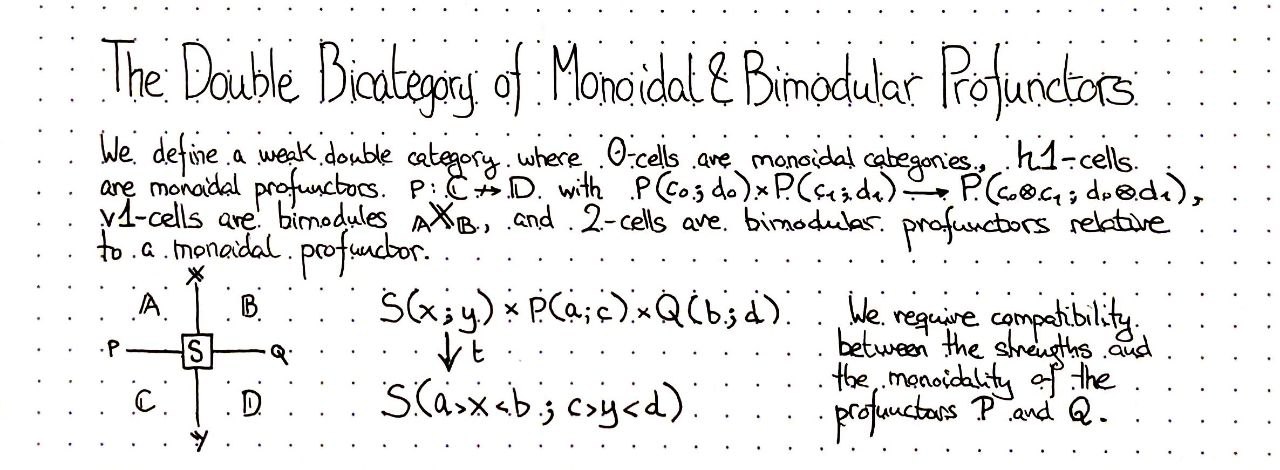 The Double Bicategory of Monoidal & Bimodular Profunctors
We define a weak double category where 0-cells are monoidal categories, h1-cells
are monoidal profunctors P: ℂ ⇸ 𝔻 with P(c₀; d₀) × P(c₁; d₁) → P(c₀⊗c₁; d₀⊗d₁),
v1-cells are bimodules 𝔸𝕏𝔹, and 2-cells are bimodular profunctors relative
to a monoidal profunctor.
𝕏
𝔸 𝔹
P S Q
ℂ 𝔻
𝕐
S(x; y) × P(a; c) × Q(b; d)
↓ t
S(a>x<b; c>y<d)
We require compatibility
between the strengths and
the monoidality of the
profunctors P and Q.